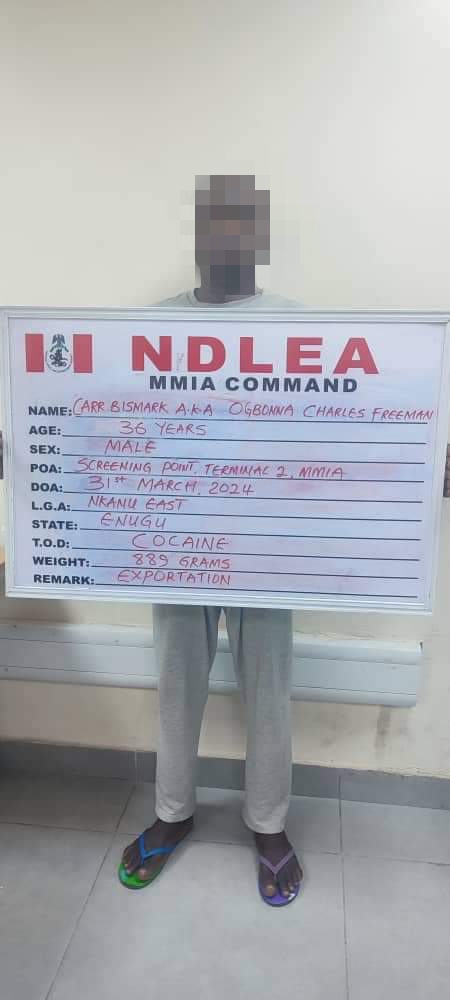 NDLEA
MMIA COMMAND
NAME: CARR BISMARK A.K.A OGBONNA CHARLES FREEMAN
AGE: 36 YEARS
SEX: MALE
POA: SCREENING POINT, TERMINAL 2, MMIA
DOA: 31st MARCH, 2024
L.G.A: NKANU EAST
STATE: ENUGU
T.O.D: COCAINE
WEIGHT: 889 GRAMS
REMARK: EXPORTATION